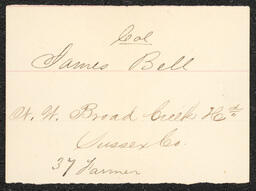 Col
James Bell
N. W. Broad Creek Hd
Sussex Co.
37 Farmer